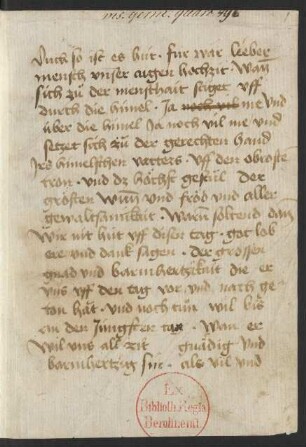 ms. germ. quart. 496
1
Auch so ist es hüt . fur war lieber
mensch vnser aigen hochzit . Wan
sich zů der menschait stiget vff
durch die himel . Ja noch vil me vnd
über die himel Ja noch vil me vnd
setzet sich zů der gerechten hand
Jrs himelschen vatters . vff den obroste
tron . vnd dz höchst gestůl . der
grösten wunn vnd fröd vnd aller
gewaltsamikait . Warum söltend dan
wir nit hüt vff disen tag . got lob
ere vnd dank sagen . der grossen
gnad vnd barmhertzikait die er
vns vff den tag vor vnd nach ge
ton hät . vnd noch tůn wil bis
an den Jungsten tag . Wan er
wil vns all zit gnädig vnd
barmhertzig sin . als vil vnd
Ex
Biblioth. Regia
Berolinensi